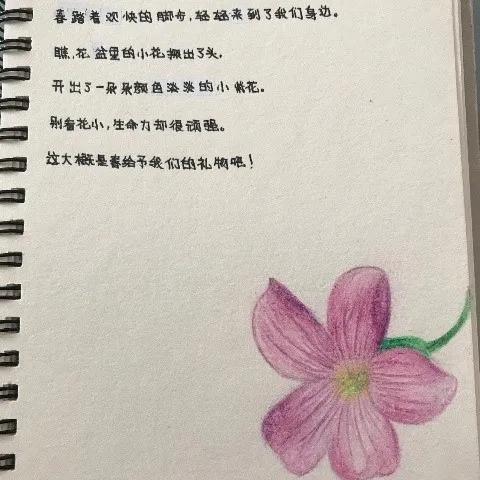 春踏着欢快的脚步,轻轻来到了我们身边。
瞧,花盆里的小花探出了头,
开出了一朵朵颜色淡淡的小紫花。
别看花小,生命力却很顽强。
这大概是春给予我们的礼物吧!